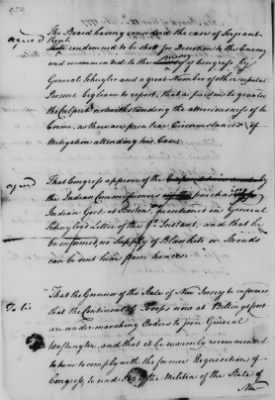 agreed
The Board having considered the case of Serjeant
condemned to be shot for Desertion to the Enemy
and recommended to the mercy of Congress, by
General Schuyler and a great Number of other reputable
Persons beg leave to report, that a pardon be granted
the Culprit notwithstanding the atrociousness of the
Crime, as there are peculiar Circumstances of
Mitigation attending his Case.
agreed
That Congress approve of the
by
the Indian Commissioners
Indian Goods at Boston, mentioned in General
Schuyler's Letter of the Instant, and that he
be informed, no Supply of Blankets or Strouds
can be sent him from hence.
To lie
That the Governor of the State of New Jersey be informed
that the Continental Troops now at Billingsport
are under marching Orders to join General
Washington, and that it be warmly recommended
to him to comply with the former Requisition of
Congress, to send the Militia of the State of
New